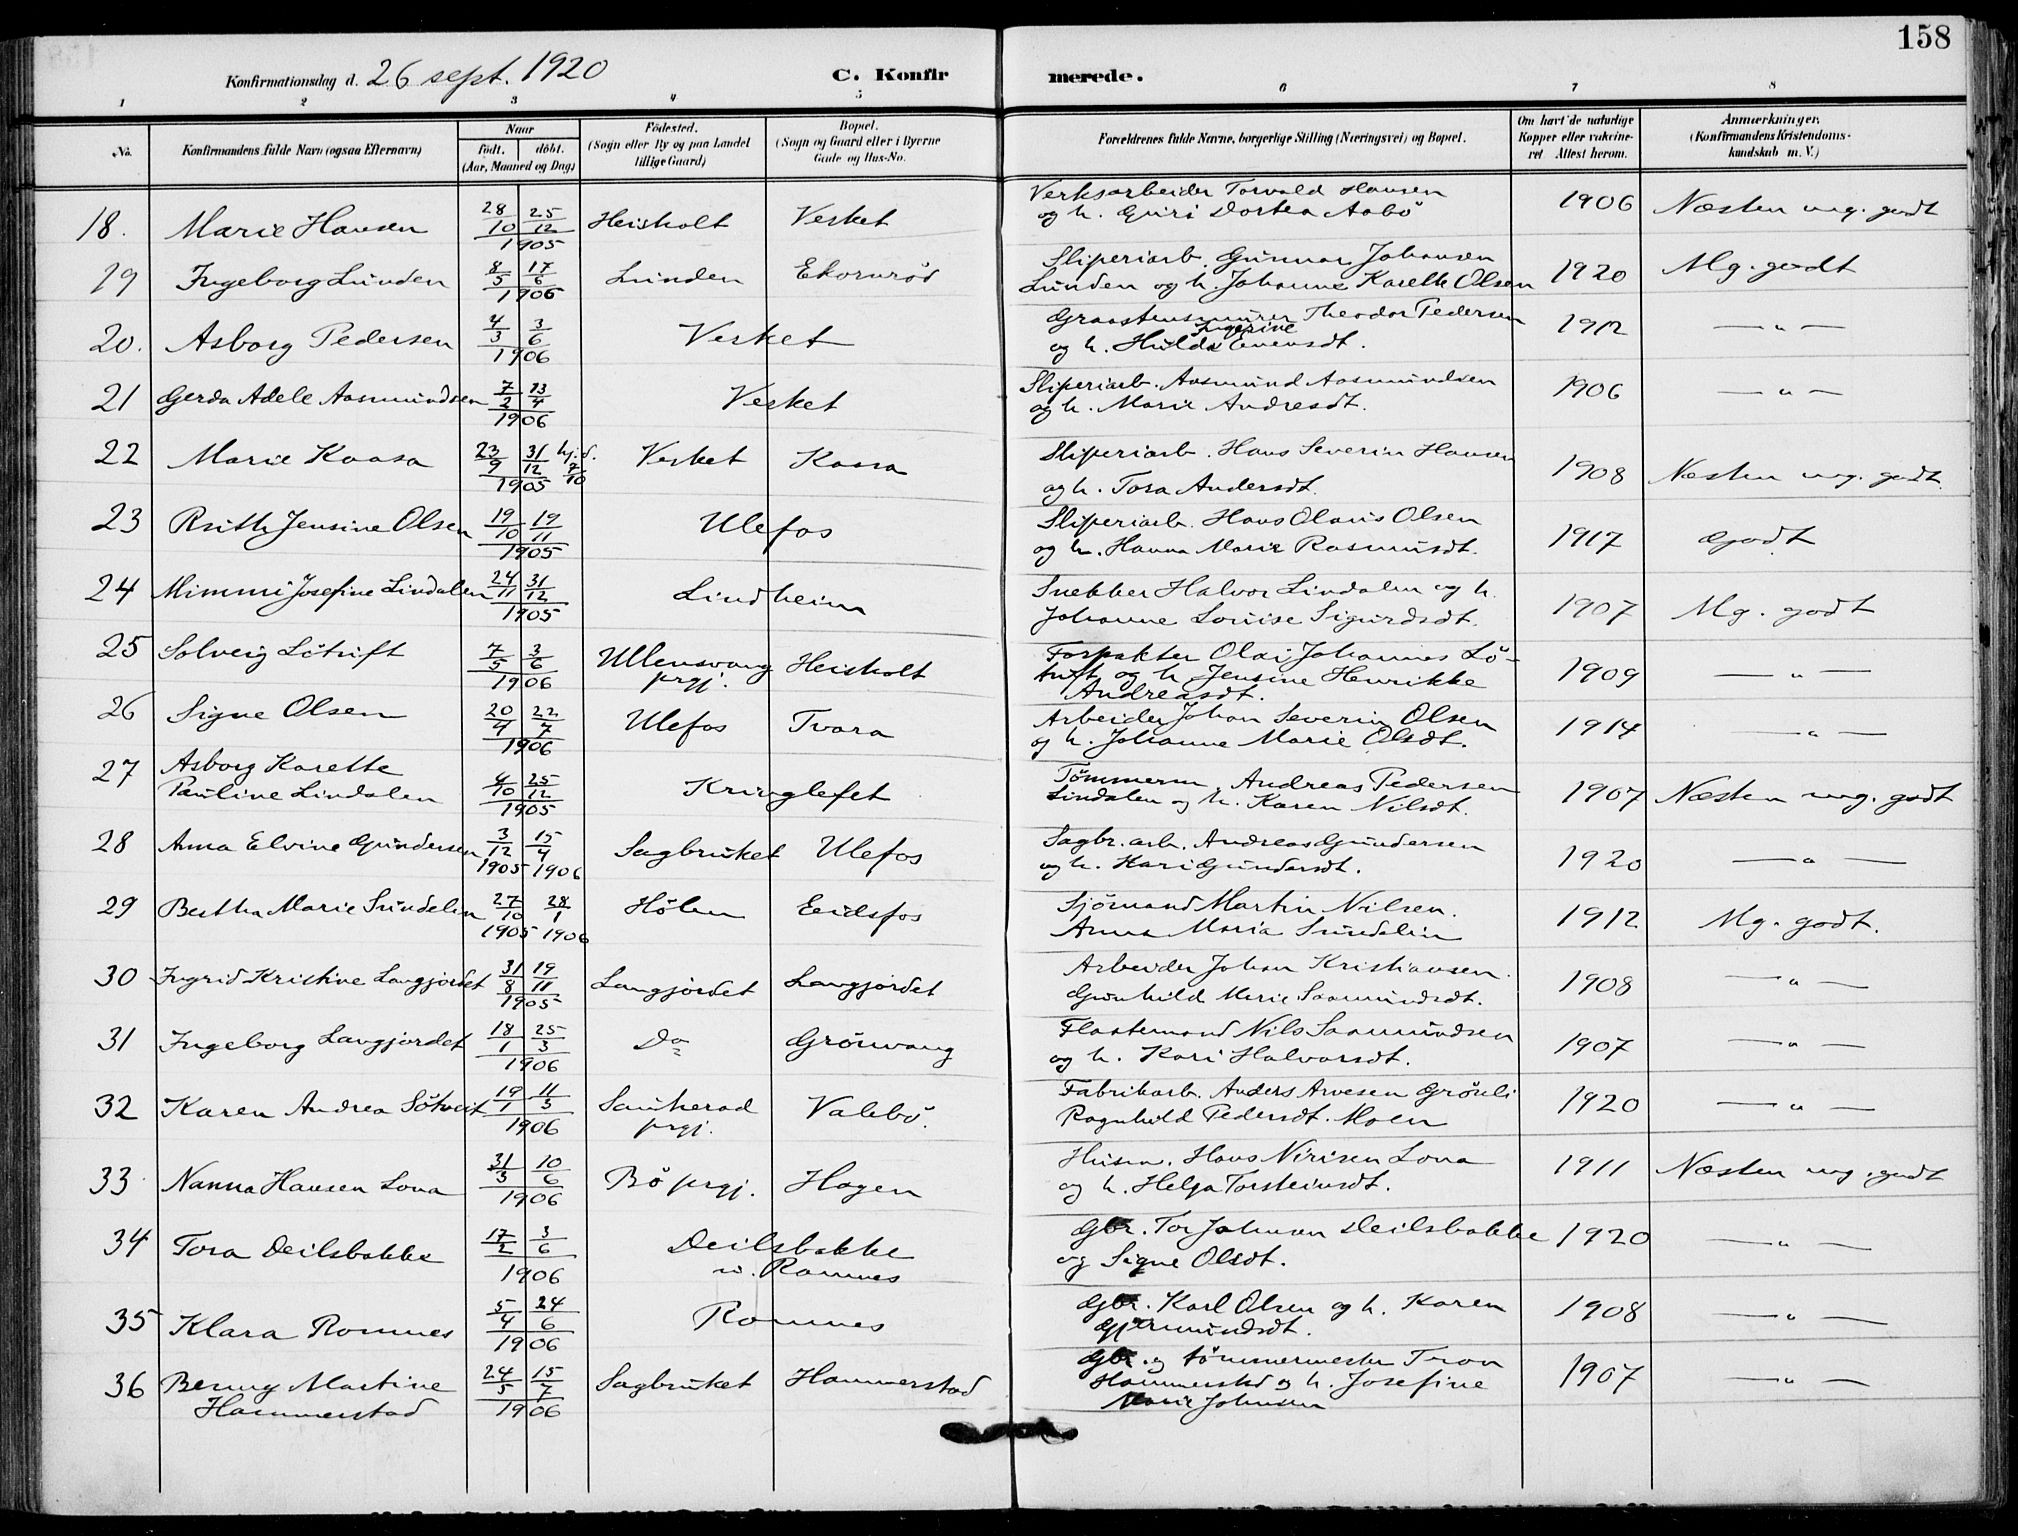 158
Konfirmationsdag d. 26 sept. 1920
C. Konfir merede.
1 2 3 4 5 6 7 8
No.
Konfirmandens fulde Navn (ogsaa Efternavn)
Naar
født. døbt.
(Aar, Maaned og Dag)
Fødested.
(Sogn eller By og paa Landet
tillige Gaard)
Bopæl.
(Sogn og Gaard eller i Byerne
Gade og Hus-No.
Forældrenes fulde Navne, borgerlige Stilling (Næringsvei) og Bopæl.
Om havt de naturlige
Kopper eller vakcine-
ret Attest herom.
Anmærkninger.
(Konfirmandens Kristendoms-
kundskab m. V.)
18. Marie Hansen 28/10 25/12 1905 Heisholt Verket
Verksarbeider Torvald Hansen
og h. Guri Dortea Aabö 1906 Næsten mg. godt
19 Ingeborg Lunden 8/5 17/6 1906 Lunden Ekornröd
Sliperiarb. Gunnar Johansen
Lunden og h. Johanne Karelle Olsen 1920 Mg. godt
20. Asborg Pedersen 4/3 3/6 1906 Verket
Graastensmurer Theodor Pedersen
Ingerine
og h. Hulda Evensdt. 1912 — " —
21 Gerda Adele Aasmundsen 7/2 23/4 1906 Verket
Sliperiarb. Aasmund Aasmundsen
og h. Marie Andreasdt. 1906 — " —
22 Marie Kaasa 23/9 31/12 1905 hj. d. 7/10 Verket Kaasa
Sliperiarb. Hans Severin Hansen
og h. Tora Andersdt. 1908 Næsten mg. godt.
23 Ruth Jensine Olsen 19/10 19/11 1905 Ulefos
Sliperiarb. Hans Olaus Olsen
og h. Hanna Marie Rasmusdt. 1917 Godt
24 Mimmi Josefine Lindalen 24/11 31/12 1905 Lindheim
Snekker Halvor Lindalen og h.
Johanne Louise Sigurdsdt. 1907 Mg. godt
25 Solveig Lötuft 7/5 3/6 1906 Ullensvang prgj. Heisholt
Forpakter Olai Johannes Lö-
tuft og h Jensine Henrikke
Andreasdt. 1909 — " —
26 Signe Olsen 20/4 22/7 1906 Ulefos Tvara
Arbeider Johan Severin Olsen
og h. Johanne Marie Olsdt. 1914 — " —
27 Asborg Karette
Pauline Lindalen 4/10 25/12 1905 Kringlefet
Tömmerm. Andreas Pedersen
Lindalen og h. Karen Nilsdt. 1907 Næsten mg. godt
28 Anna Elvine Gundersen 3/12 15/4 1905 1906 Sagbruket Ulefos
Sagbr. arb. Andreas Gundersen
og h. Kari Gundersdt. 1920 — " —
29 Bertha Marie Sundelin 27/10 28/1 1905 1906 Hölen Eidsfos
Sjömand Martin Nilsen.
Anna Maria Sundelin 1912 Mg. godt.
30 Ingrid Kristine Langjordet 31/8 19/11 1905 Langjordet Langjordet
Arbeider Johan Kristiansen.
Gunhild Marie Saamundsdt. 1908 — " —
31 Ingeborg Langjordet 18/1 25/3 1906 Do Grönvang
Flaatemand Nils Saamundsen
og h. Kari Halvorsdt. 1907 — " —
32 Karen Andrea Sötveit 19/1 11/3 1906 Sauherad prgj. Valebö.
Fabrikarb. Anders Arvesen Grönli
Ragnhild Pedersdt. Moen 1920 — " —
33 Nanna Hansen Lona 31/3 10/6 1906 Bö prgj. Hagen
Husm. Hans Nirisen Lona
og h. Helga Torsteinsdt. 1911 Næsten mg. godt
34 Tora Deilsbakke 17/2 3/6 1906 Deilsbakke
u. Romnes
Gbr. Tor Johnsen Deilsbakke
og Signe Olsdt. 1920 — " —
35 Klara Romnes 5/4 24/6 1906 Romnes
Gbr. Karl Olsen og h. Karen
Gjermundsdt. 1908 — " —
36 Benny Martine
Hammerstad 24/5 15/7 1906 Sagbruket Hammerstad
Gbr. og tömmermester Tron
Hammerstad og h. Josefine
Marie Johnsen 1907 — " —